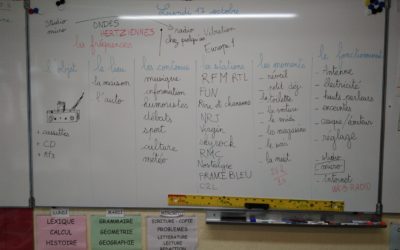 Lundi 17 octobre
studio
micro
ONDES
HERTZIENNES
les fréquences
radio
chez quelqu'un
Vibration
Europe 1
l'objet
cassettes
CD
MP3
le lieu
la maison
l'auto
les contenus
musique
information
humoristes
débats
sport
culture
météo
les stations
RFM RTL
FUN
Rire et chansons
NRJ
Virgin
Skyrock
RMC
Nostalgie
FRANCE BLEU
les moments
- réveil
petit déj
- la toilette
- la voiture
- le midi
- les magasins
- le soir
- la nuit
le fonctionnement
- antenne
- électricité
- hauts parleurs
- enceintes
- casque/écouteur
- réglage
studio
micro
- Internet
WEB RADIO
LUNDI
LEXIQUE
CALCUL
HISTOIRE
MARDI
GRAMMAIRE
GÉOMÉTRIE
GÉOGRAPHIE
MERCREDI
PROBLEMES
LITTERATURE
LECTURE